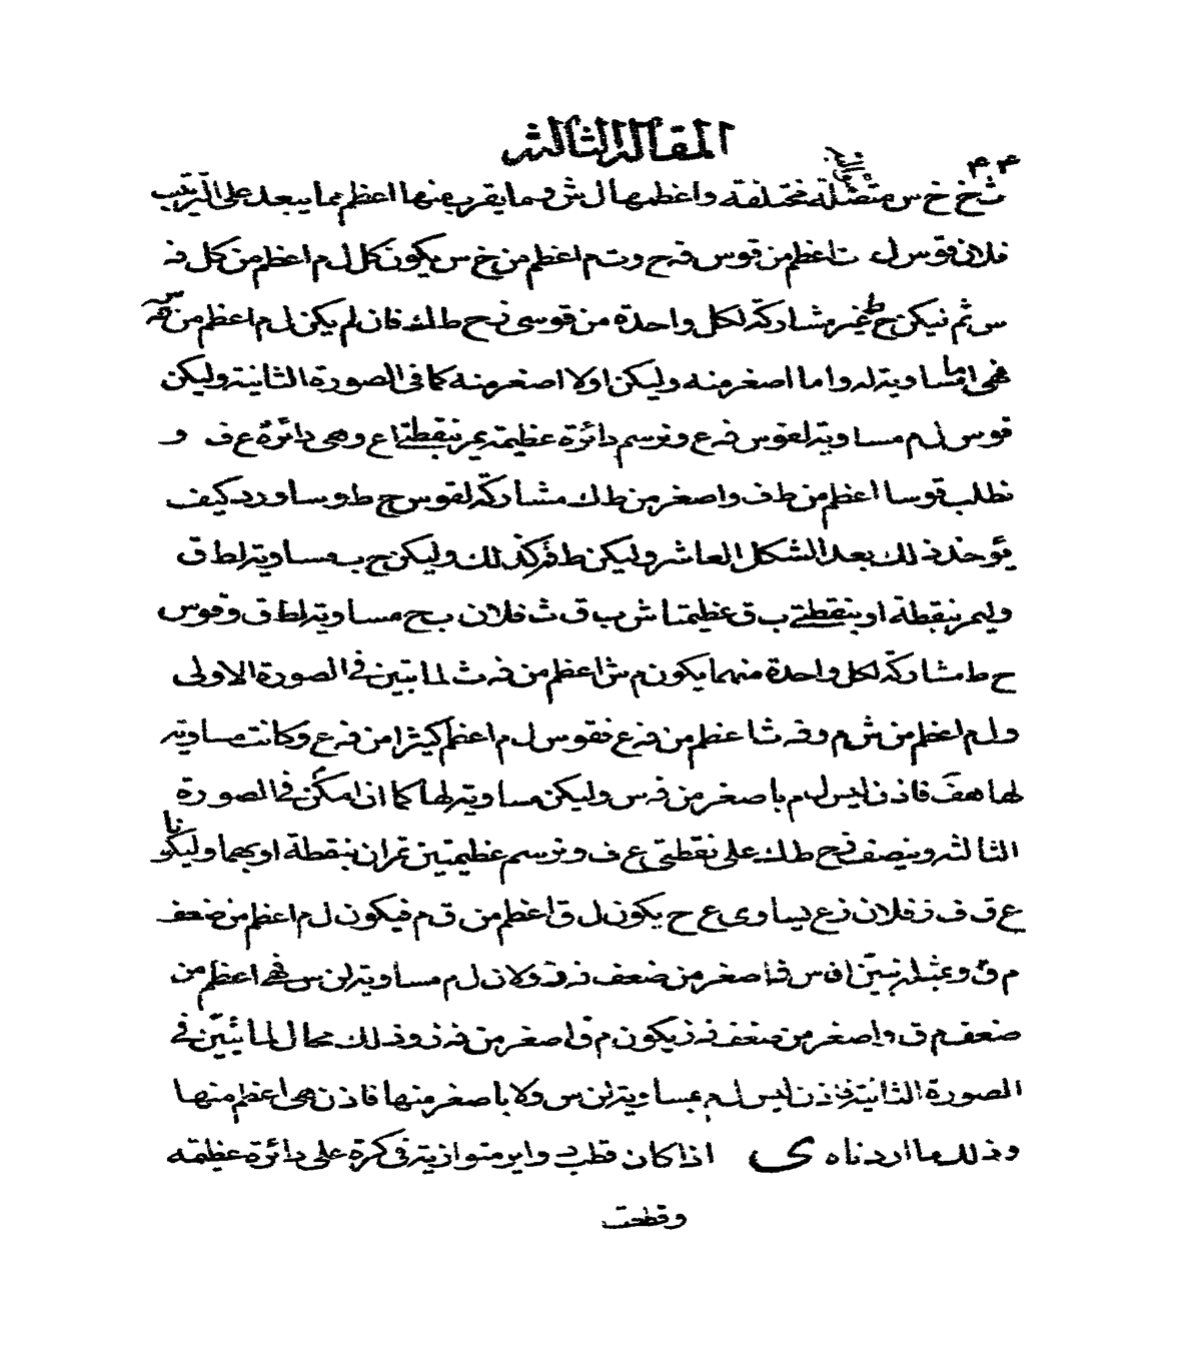 المقالة الثالثة
٤٤
ث خ خ س متصلة مختلفة واعظمها ل ش وما يقرب منها اعظم مما يبعد على الترتيب
فلان قوس ل ت اعظم من قوس ق ح و ت م اعظم من خ س يكون كل ل م اعظم من كل ق
س ثم نيكن ح ط غير مشاركة لكل واحدة من قوسى ز ح ط ك فان لم يكن ل م اعظم من
فهى اما مساوية له واما اصغر منه وليكن اولا اصغر منه كما فى الصورة الثانية وليكن
قوس ل م مساوية لقوس ف ع ونرسم دائرة عظيمة يمر بنقطتى ا ع وهى دائرة ع ف و
نطلب قوسا اعظم من ط ف واصغر من ط ك مشاركة لقوس ح ط وساورد كيف
يؤخذ ذلك بعد الشكل العاشر وليكن ط ق كذلك وليكن ح ب مساوية لط ق
وليمر بنقطة ا وبنقطتى ب ق عظيمتا ش ب ق ث فلان ب ح مساوية لط ق وقوس
ح ط مشاركة لكل واحدة منهما يكون م ش اعظم من ف ث لما تبين فى الصورة الاولى
و ل م اعظم من ش م و ف ث اعظم من ف ع فقوس ل م اعظم كثيرا من ف ع وكانت مساوية
لها هف فاذن ليس ل م باصغر من ف س وليكن مساوية لها كما ان امكن فى الصورة
الثالثة وينصف ز ح ط ك على نقطتى ع ف ونرسم عظيمتين تمران بنقطة ا وبهما وليكونا
ع ق ف ز فلان ز ع يساوى ع ح يكون ل ق اعظم من ق م فيكون ل م اعظم من ضعف
م ق وبمثله نبين ان س ف اصغر من ضعف ف ز ولان ل م مساوية لن س فهى اعظم من
ضعف م ق واصغر من ضعف ف ز يكون م ق اصغر من ف ز وذلك محال لما تبين فى
الصورة الثانية فاذن ليس ل م بمساوية لن س ولا باصغر منها فاذن هى اعظم منها
وذلك ما اردناه ى اذا كان قطب دواير متوازية فى كرة على دائرة عظيمة
وقطعت